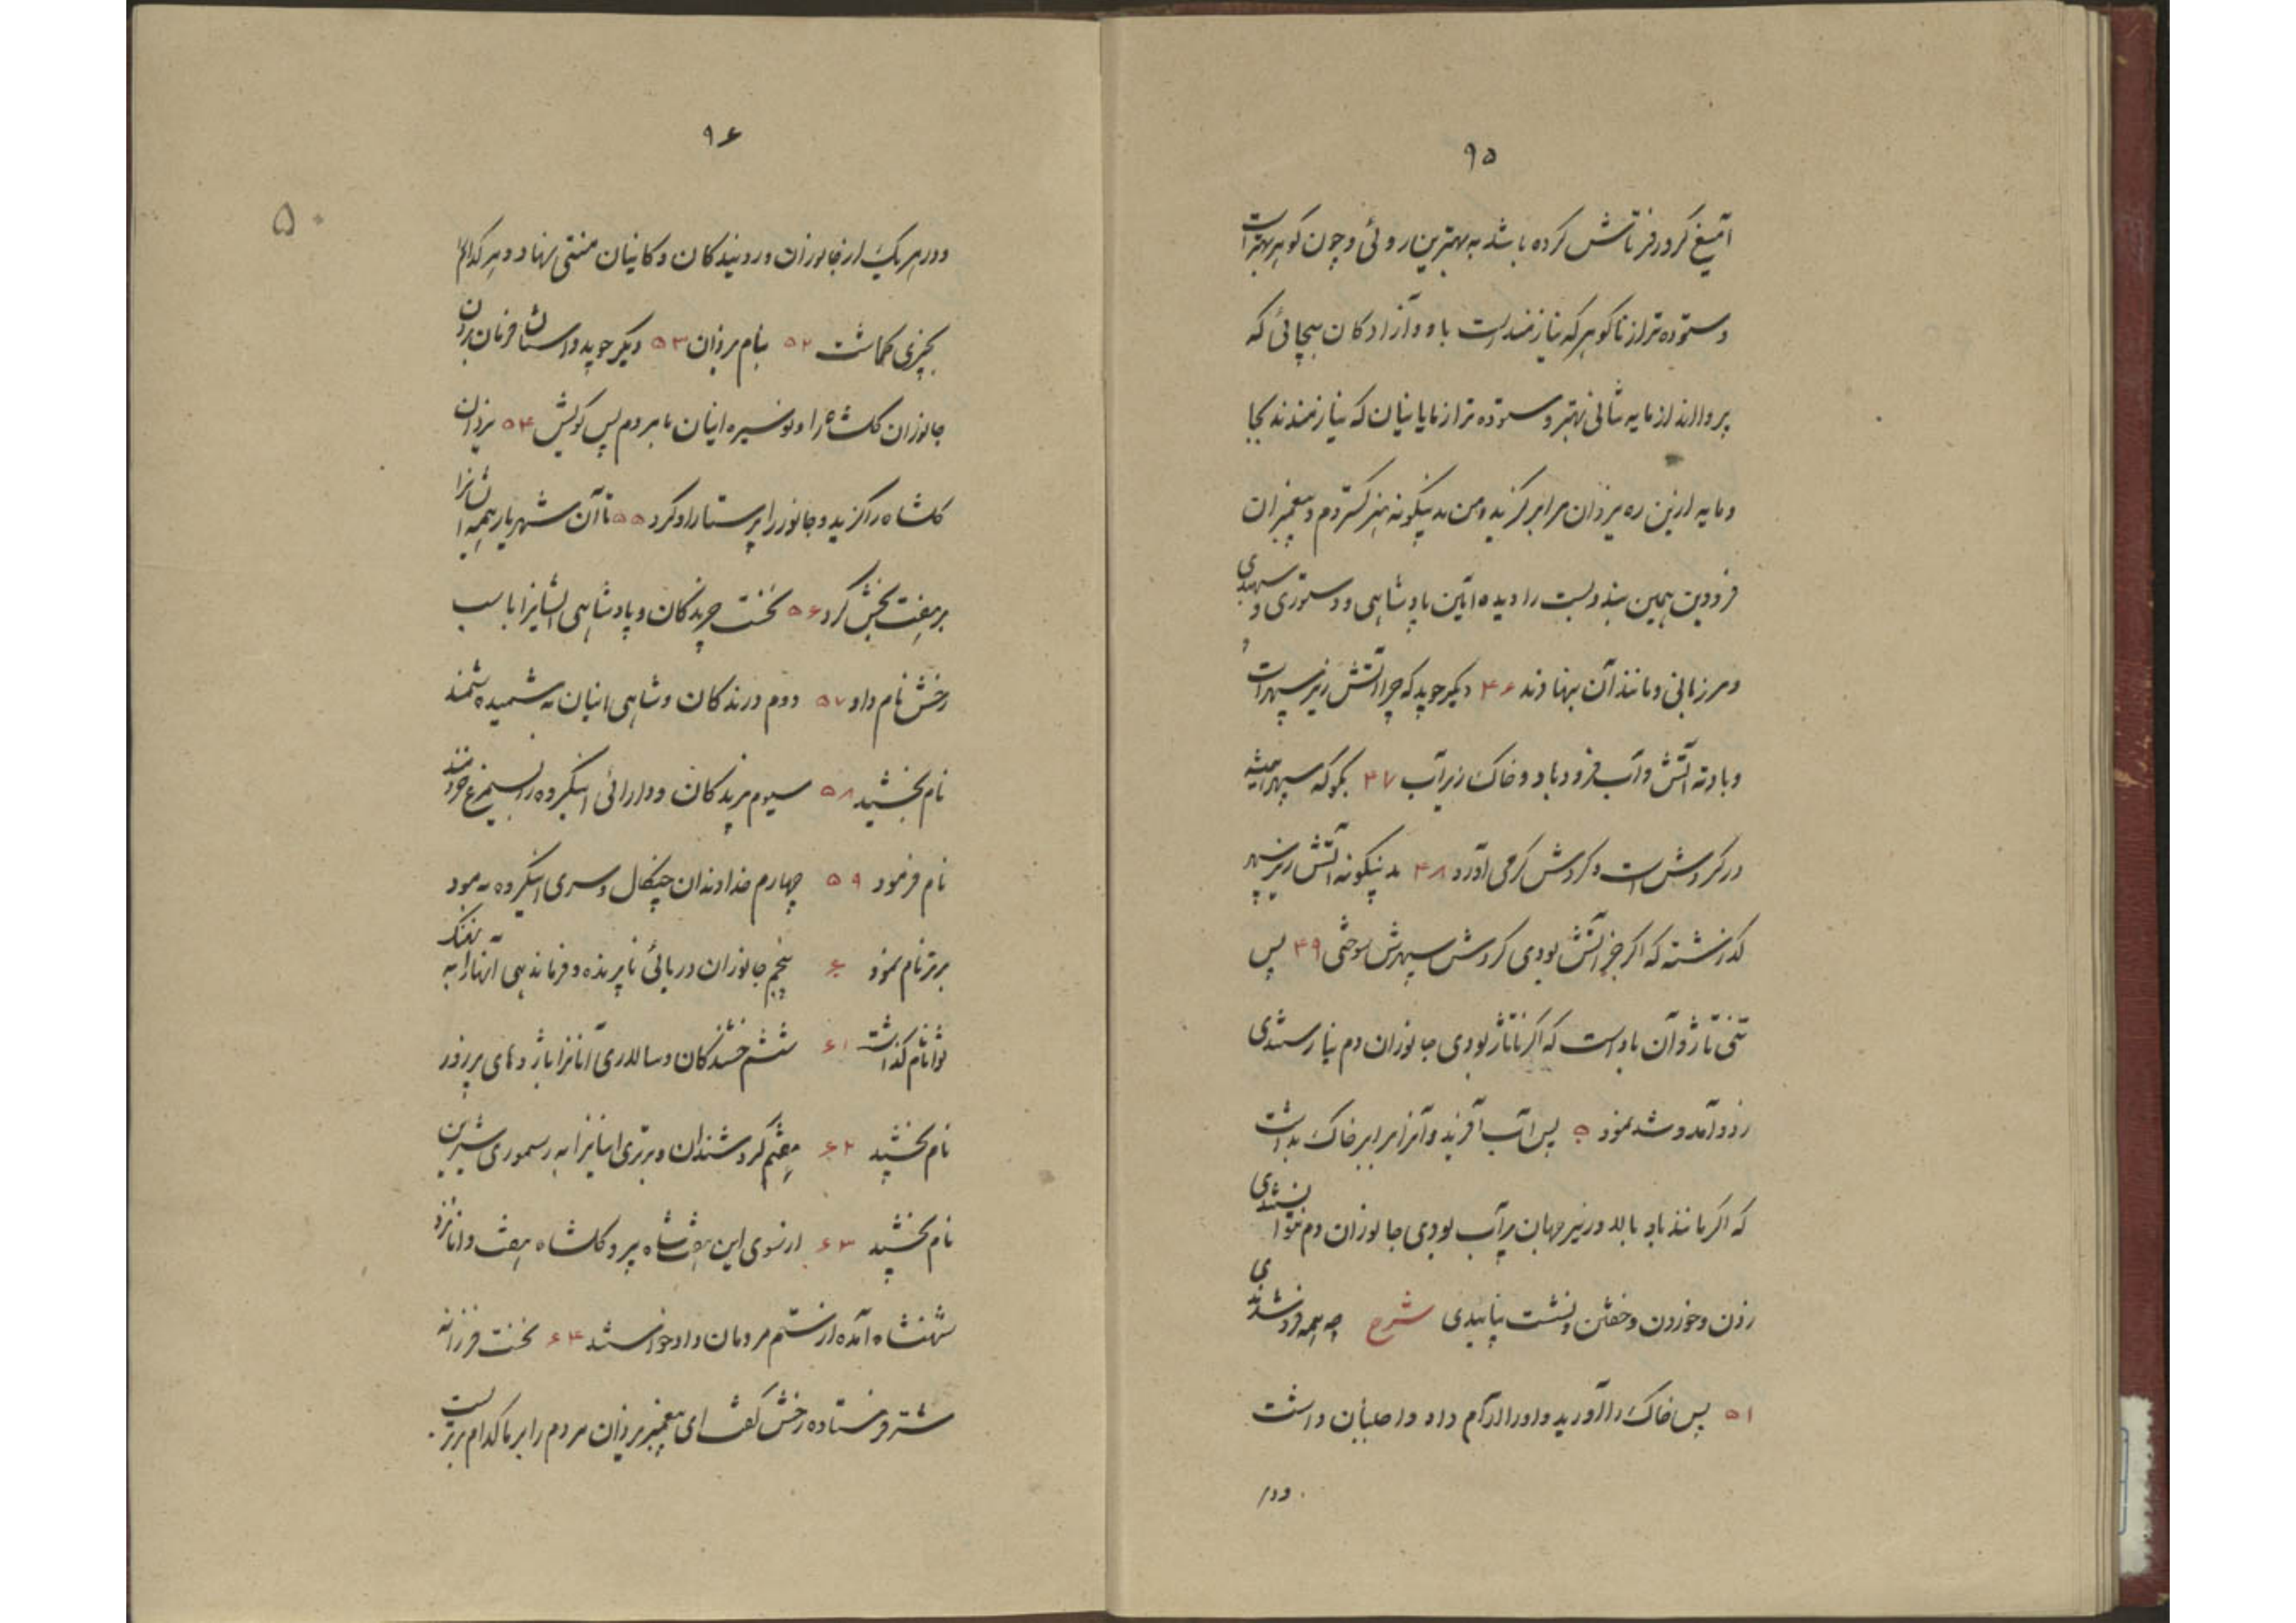 ۹۵
آمیغ کرور فرتاش کرده باشد به بهترین روئی و چون گوهر بهتر است
و ستوده‌تر از ناگوهر که نیازمند است باو و آزادکان بیجائی که
پروا اند از مایه شانی بهتر و ستوده‌تر از مایانیان که نیازمندند بجا
و مایه ازین ره یزدان مرا برگزید و من بدینگونه هنر گستردم و پیغمبران
فرودین همین بند و بست را دیده آئین پادشاهی و دستوری و سپهبدی
و مرزبانی و مانند آن بنهادند ۴۶ دیگر جوید که چرا آتش زیر سپهر است
و باد ته آتش و آب فرود باد و خاک زیر آب ۴۷ بگو که سپهر همیشه
در گردش است و گردش گرمی آورد ۴۸ بدینگونه آتش زیر سپهر
گذاشته که اگر جز آتش بودی گردش سپهرش سوختی ۴۹ پس
تنی تا ژو آن باد است که اگر ناتاژ بودی جانوران دم نیارستندی
زد و آمد و شد نمود ۵۰ پس آب آفرید و آنرا برابر خاک بداشت
که اگر مانند باد بالا و زیر جهان پر آب بودی جانوران دم نتوانستندی
زدن و خوردن و خفتن و نشست نپائیدی شرح چه همه فرو شدندی
۵۱ پس خاک را آورید و او را آرام داد و
ودر
۹۶
۵۰
و در هر یک از جانوران و روئیدکان و کانیان منشی نهاد و هر کدام را
بچیزی گماشت ۵۲ بنام یزدان ۵۳ دیگر جوید داستان فرمان بردن
جانوران گلشاه را و توسیره اینان با مردم پس گویش ۵۴ یزدان
گلشاه را گزید و جانور را پرستار او کرد ۵۵ تا آن شهریار همه ایشانرا
بر هفت بخش کرد ۵۶ نخست چرندکان و پادشاهی ایشانرا با سب
رخش نام داد ۵۷ دوم درندکان و شاهی اینان به شمیده شمند
نام بخشید ۵۸ سیوم پرندکان و دارائی اینگروه را بسیمرغ خردمند
نام فرمود ۵۹ چهارم خداوندان چنگال و سری اینگروه به
برتر نام نمود ۶۰ پنجم جانوران دریائی ناپرنده و فرماندهی آنها را به نهنگ
توانا نام گذاشت ۶۱ ششم خزندگان و سالاری آنانرا باژدهای پر زور
نام بخشید ۶۲ هفتم گردشندان و برتری اینانرا به رسموری شیرین
نام بخشید ۶۳ از سوی این هفت شاه پرو گلشاه هفت دانا نزد
شهنشاه آمده از ستم مردمان داد خواستند ۶۴ نخست فرزانه
شتر فرستاده رخش گفت ای پیغمبر یزدان مردم را بر ما کدام برتریست